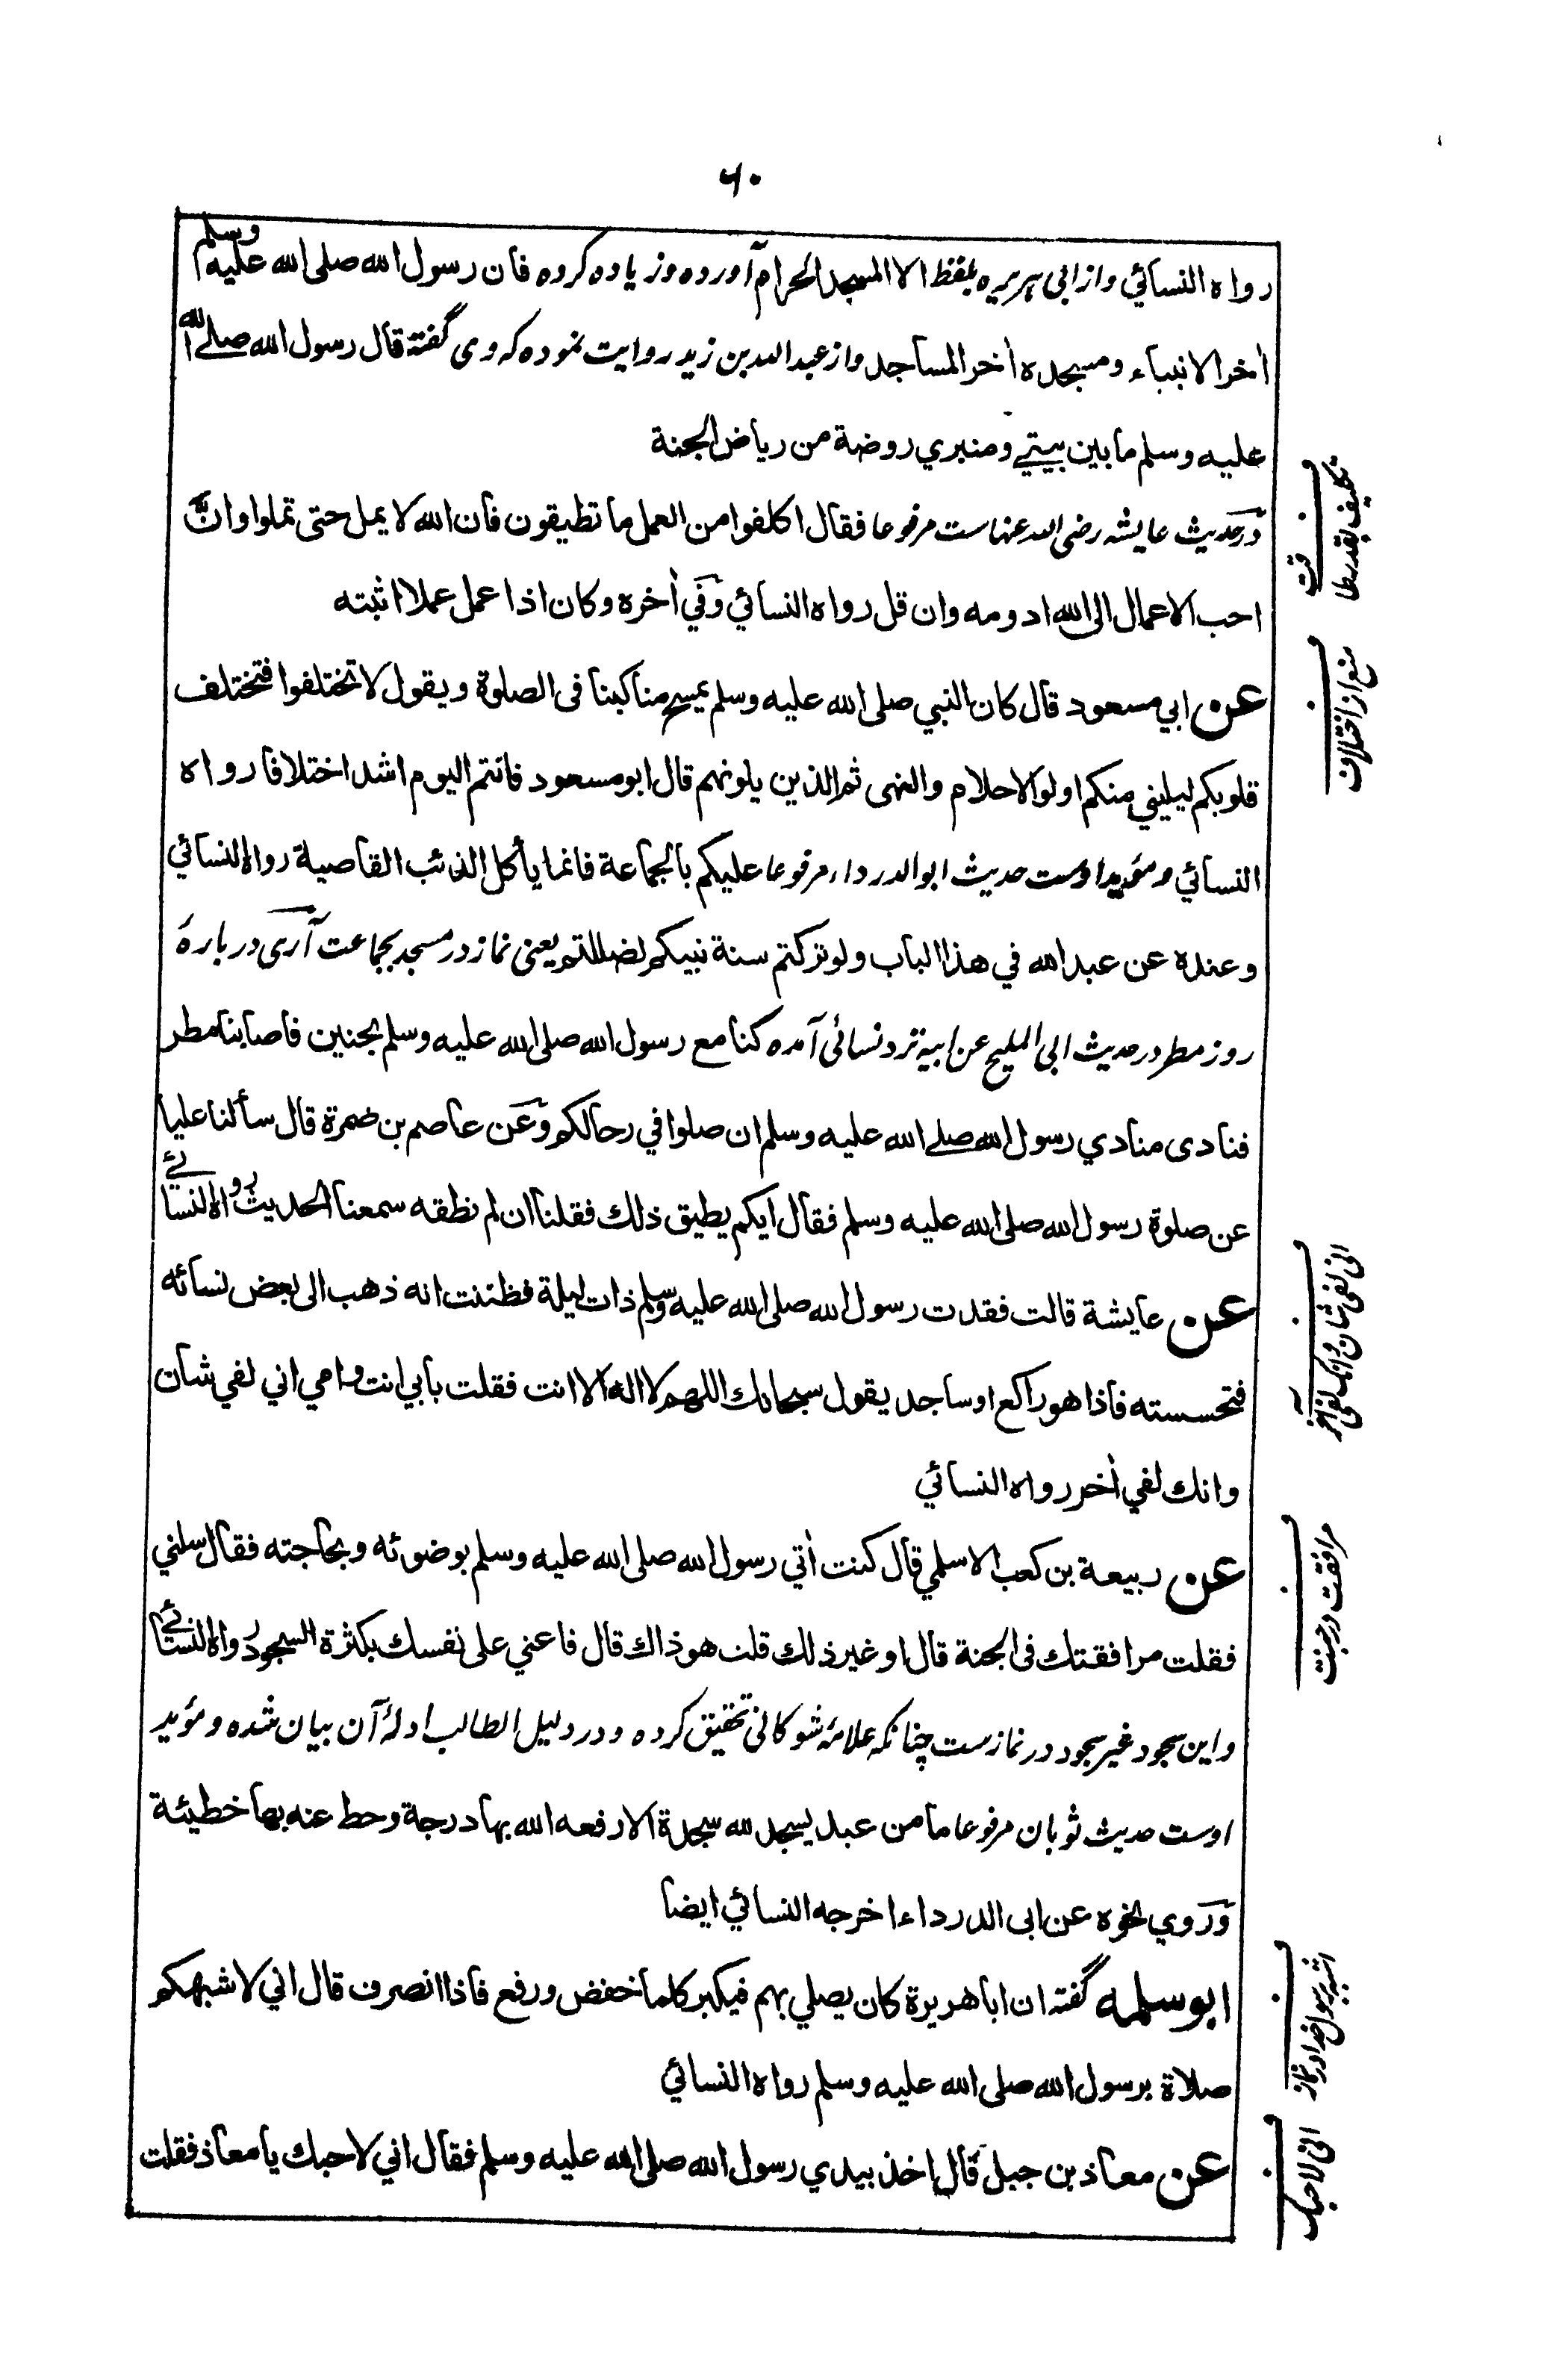 ۶۰
رواه النسائي واز ابی ہریرہ بلفظ الا المسجد الحرام آورده وزیاده کرده فان رسول الله صلی الله علیه وسلم
اٰخر الانبیاء ومسجده اٰخر المساجد واز عبد الله بن زید روایت نموده که وی گفته قال رسول الله صلے الله
علیه وسلم ما بین بیتے ومنبري روضة من ریاض الجنة
در حدیث عایشه رضی الله عنهاست مرفوعا فقال اکلفوا من العمل ما تطیقون فان الله لا یمل حتی تملوا وانّ
احب الاعمال الی الله ادومه وان قل رواه النسائي وفي اٰخره وکان اذا عمل عملا اثبته
عن ابي مسعود قال کان النبي صلی الله علیه وسلم یمسح مناکبنا فی الصلوة ویقول لا تختلفوا فتختلف
قلوبکم لیلیني منکم اولوا الاحلام والنهی ثم الذین یلونهم قال ابو مسعود فانتم الیوم اشد اختلافا رواه
النسائي ومؤید اوست حدیث ابو الدرداء مرفوعا علیکم بالجماعة فانما یأکل الذئب القاصیة رواه النسائي
وعنده عن عبد الله في هذا الباب ولو ترکتم سنة نبیکم لضللتم یعنی نماز در مسجد بجماعت آری در بارهٔ
روز مطر در حدیث ابی الملیح عن ابیه نزد نسائی آمده کنا مع رسول الله صلی الله علیه وسلم بحنین فاصابنا مطر
فنادی منادي رسول الله صلے الله علیه وسلم ان صلوا في رحالکم وعن عاصم بن ضمرة قال سألنا علیا
عن صلوة رسول الله صلی الله علیه وسلم فقال ایکم یطیق ذلك فقلنا ان لم نطقه سمعنا الحدیث رواه النسائے
عن عایشة قالت فقدت رسول الله صلی الله علیه وسلم ذات لیلة فظننت انه ذهب الی بعض نسائه
فتحسسته فاذا هو راکع او ساجد یقول سبحانك اللهم لا اله الا انت فقلت بأبي انت وامي اني لفي شان
وانك لفي اٰخر رواه النسائي
عن ربیعة بن کعب الاسلمي قال کنت اٰتي رسول الله صلی الله علیه وسلم بوضوئه وبحاجته فقال سلني
فقلت مرافقتك فی الجنة قال او غیر ذلك قلت هو ذاك قال فاعني علی نفسك بکثرة السجود رواه النسائے
واین سجود غیر سجود در نمازست چنانکه علامهٔ شوکانی تحقیق کرده ودر دلیل الطالب ادلهٔ آن بیان شده ومؤید
اوست حدیث ثوبان مرفوعا ما من عبد یسجد لله سجدة الا رفعه الله بها درجة وحط عنه بها خطیئة
وروي نحوه عن ابی الدرداء اخرجه النسائي ایضا
ابو سلمه گفته ان ابا هریرة کان یصلي بهم فیکبر کلما خفض ورفع فاذا انصرف قال اني لاشبهکم
صلاة برسول الله صلی الله علیه وسلم رواه النسائي
عن معاذ بن جبل قال اخذ بیدي رسول الله صلی الله علیه وسلم فقال اني لاحبك یا معاذ فقلت
ف تکلیف بقدر طاقت
ف منع از اختلاف
ف انی لفی شان وانک لفی آخر
ف مرافقت در جنت
ف اشبه برسول خدا در نماز
ف انی لاحبک